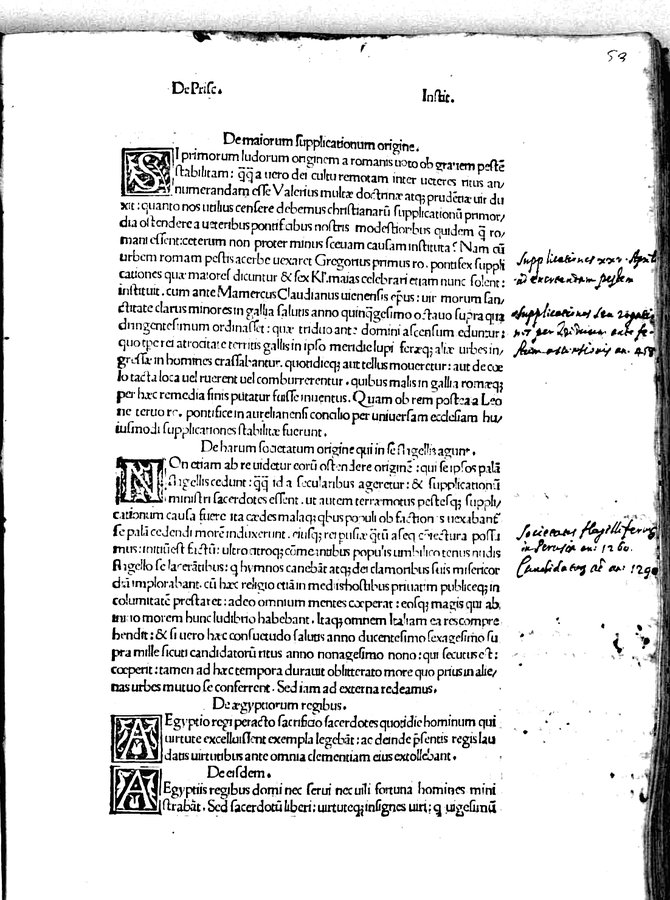 53
De Prisc.
Instit.
De maiorum supplicationum origine.
SI primorum ludorum originem a romanis uoto ob grauem pestē
stabilitam: q̄q̄ a uero dei cultu remotam inter ueteres ritus an/
numerandam esse Valerius multæ doctrinæ atq; prudētiæ uir du
xit: quanto nos utilius censere debemus christianarū supplicationū primor/
dia ostendere a ueteribus pontificibus nostris modestioribus quidem q̄ ro/
mani essent: ceterum non propter minus sæuam causam instituta? Nam cū
urbem romam pestis acerbe uexaret Gregorius primus ro. pontifex suppli
cationes quæ maiores dicuntur & sex Kl'. maias celebrari etiam nunc solent:
instituit. cum ante Mamercus Claudianus uienensis ep̄us: uir morum san/
ctitate clarus minores in gallia salutis anno quinq̄gesimo octauo supra qua
dringentesimum ordinasset: quæ triduo ante domini ascensum eduntur:
quo tpe rei atrocitate territis gallis in ipso meridie lupi feræq; aliæ urbes in/
gressæ in homines crassabantur. quotidieq; aut tellus moueretur: aut de cœ
lo tacta loca uel ruerent uel comburrerentur. quibus malis in gallia romæq;
per hæc remedia finis putatur fuisse inuentus. Quam ob rem postea a Leo
ne tertio ro. pontifice in aurelianensi concilio per uniuersam ecclesiam hu/
iusmodi supplicationes stabilitæ fuerunt.
De harum societatum origine qui in se flagellis agunt.
NOn etiam ab re uidetur eorū ostendere originē: qui se ipsos palā
flagellis cedunt: q̄q̄ id a secularibus ageretur: & supplicationū
ministri sacerdotes essent. ut autem terræmotus pestesq; suppli/
cationum causa fuere ita cædes malaq; qbus populi ob factiones uexabant̄
se palā cedendi morē induxerunt. eiusq; rei
mus: initiū est factū: ultro citroq; cōmeantibus populis umbilico tenus nudis
flagello se lacerātibus: q hymnos canebāt atq; dei clamoribus suis misericor
diā implorabant. cū hæc religio etiā in medis hostibus priuatim publiceq; in
columitatē præstaret: adeo omnium mentes cœperat: eosq; magis qui ab
initio morem hunc ludibrio habebant. Itaq; omnem Italiam ea res compre
hendit: & si uero hæc consuetudo salutis anno ducentesimo sexagesimo su
pra mille sicuti candidatorū ritus anno nonagesimo nono: qui secutus est:
cœperit: tamen ad hæc tempora durauit oblitterato more quo prius in alie/
nas urbes mutuo se conferrent. Sed iam ad externa redeamus.
De ægyptiorum regibus.
AEgyptio regi peracto sacrificio sacerdotes quotidie hominum qui
uirtute excelluissent exempla legebāt: ac deinde p̄sentis regis lau
datis uirtutibus ante omnia clementiam eius extollebant.
De eisdem.
AEgyptiis regibus domi nec serui nec uili fortuna homines mini
strabāt. Sed sacerdotū liberi: uirtuteq; insignes uiri; q uigesimū
Supplicationes xxv. Aprilis
ad euertendam pestem
Supplicationes seu rogatio
per triduum ante fe-
stum ascensionis an. 458
Societas flagelliferum
in Perusia an: 1260.
Candidatorū at an: 1299